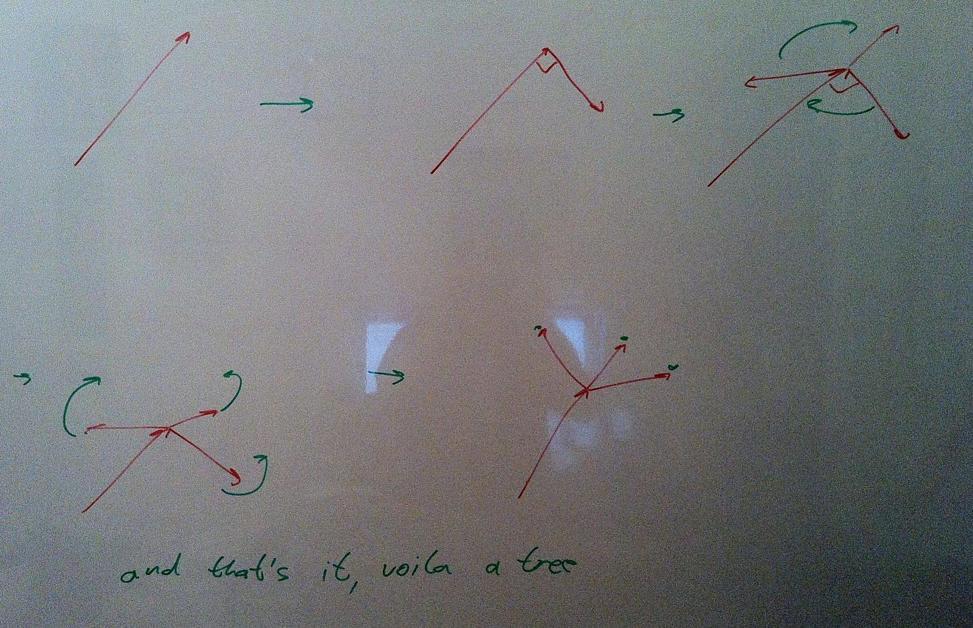 and that's it, voila a tree